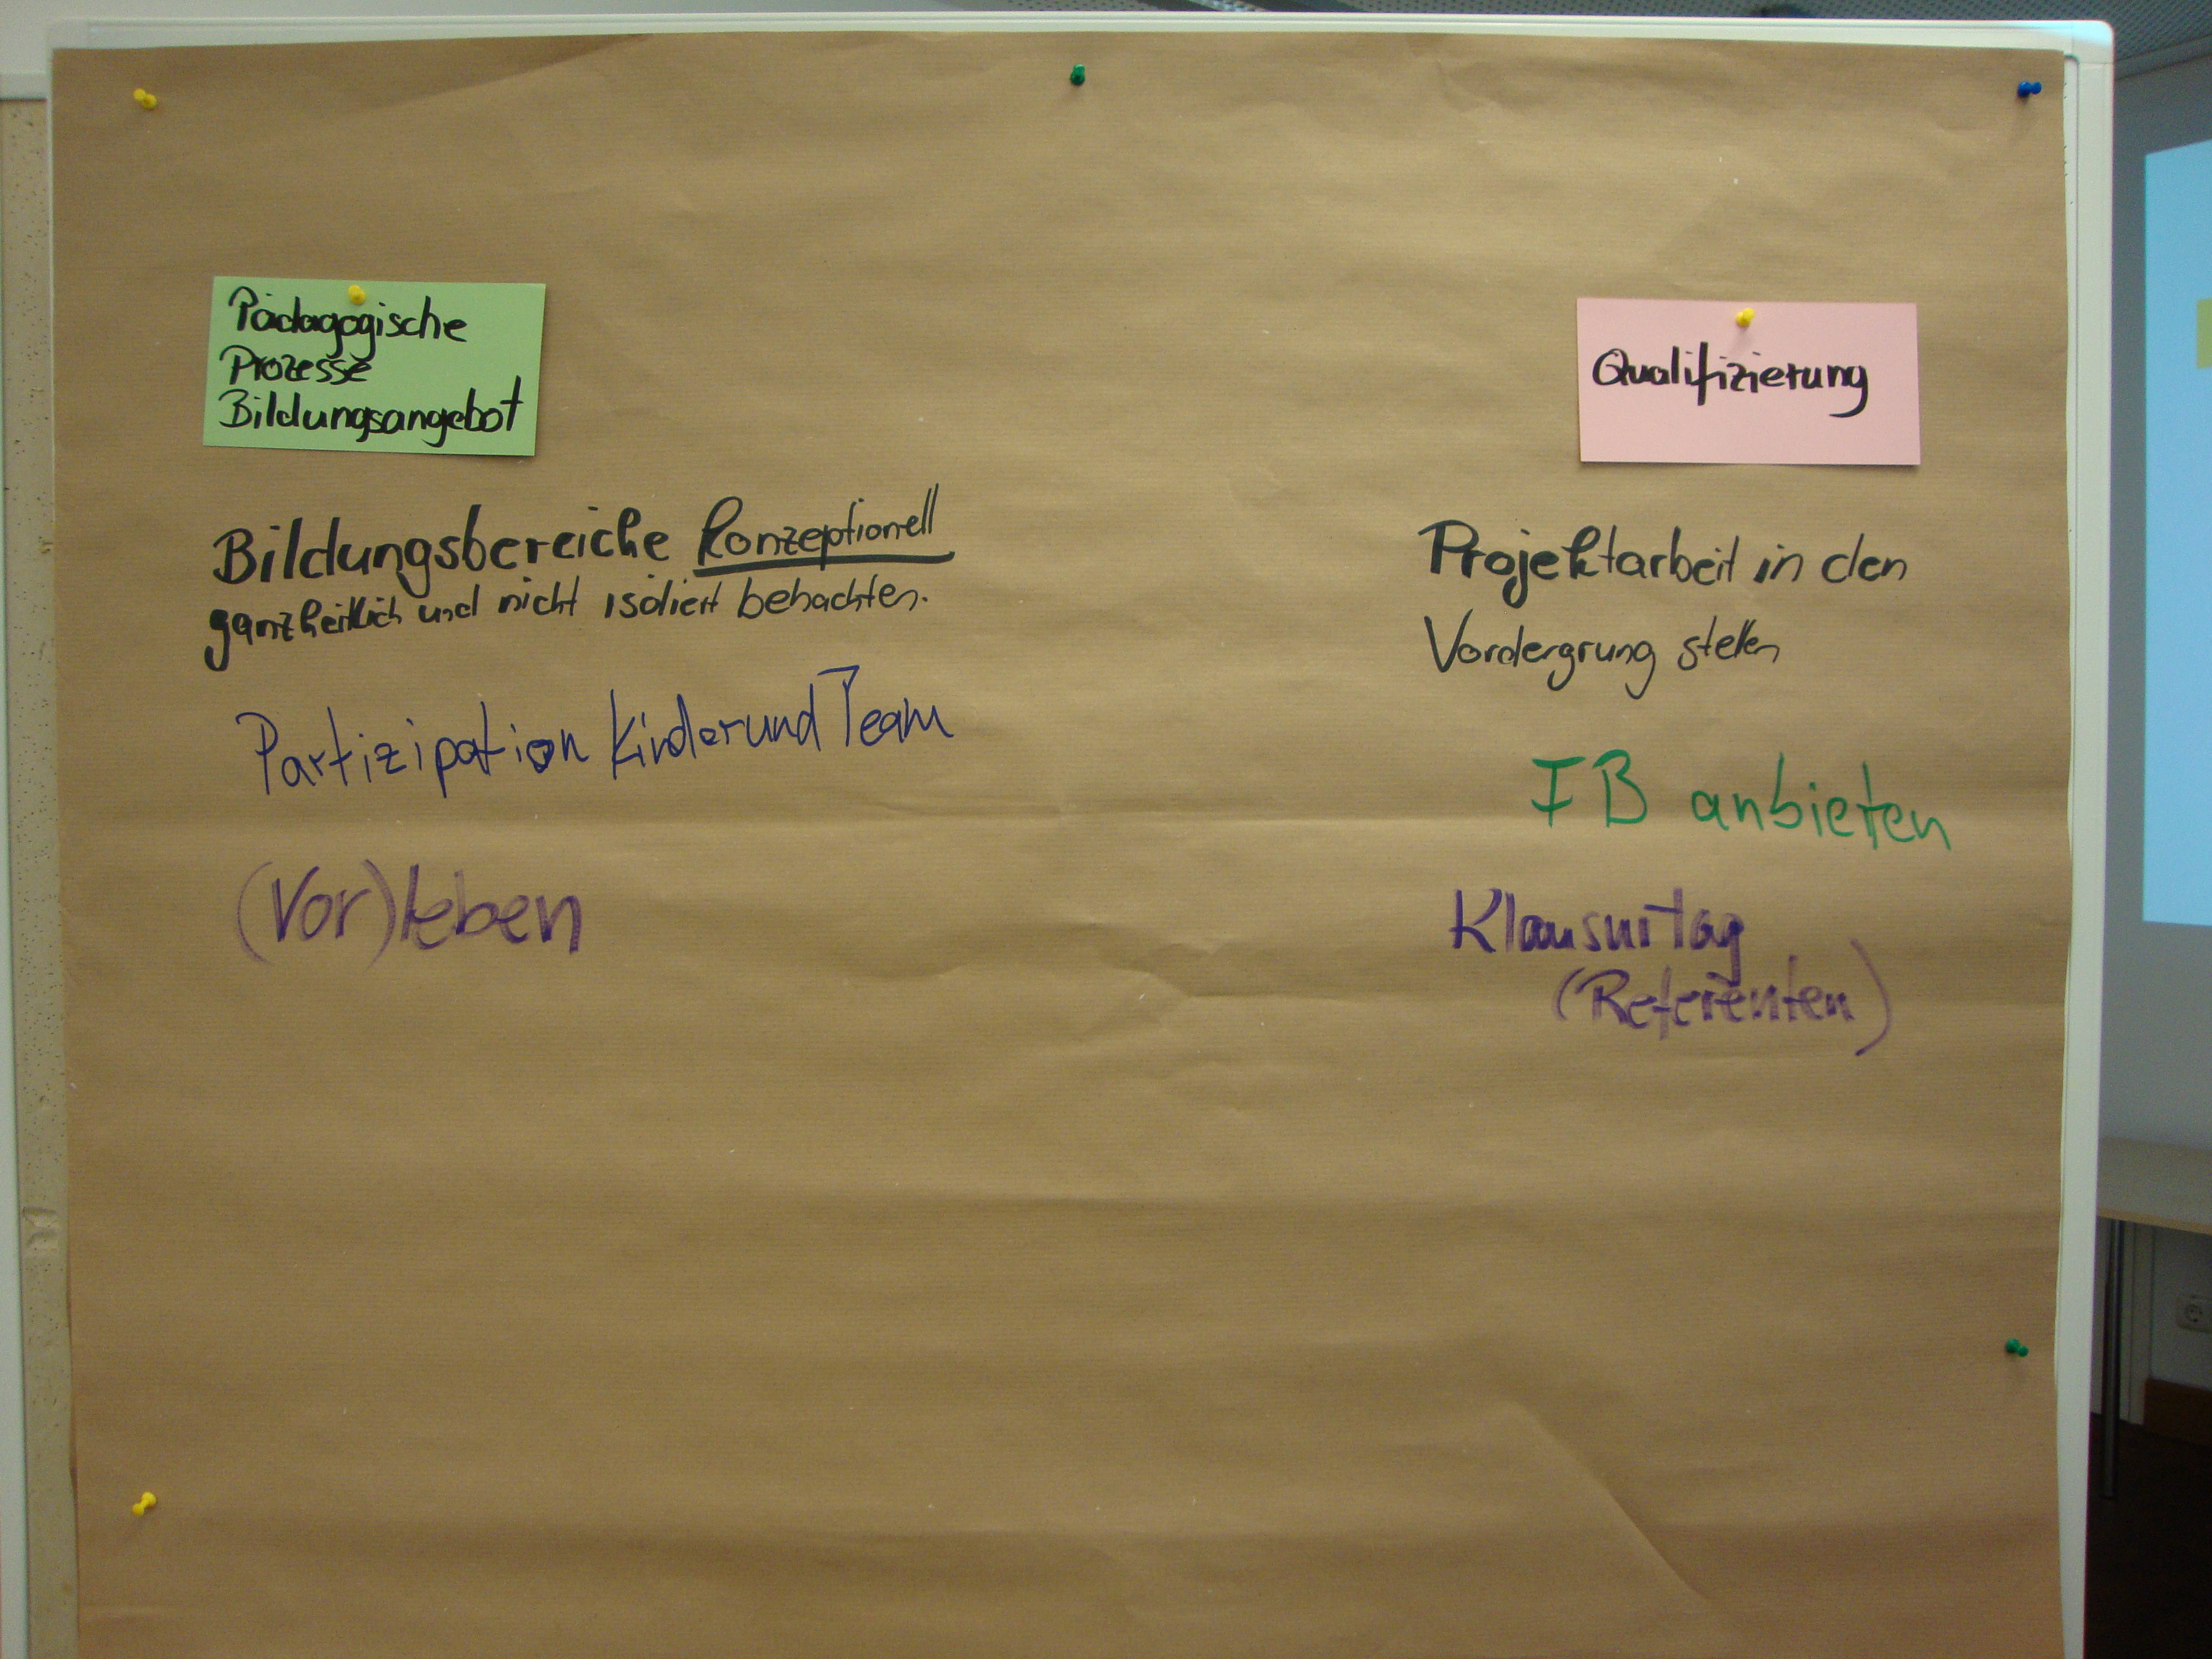 Pädagogische
Prozesse
Bildungsangebot
Bildungsbereiche konzeptionell
ganzheitlich und nicht isoliert betrachten.
Partizipation Kinder und Team
(Vor)leben
Qualifizierung
Projektarbeit in den
Vordergrung stellen
FB anbieten
Klausurtag
(Referenten)